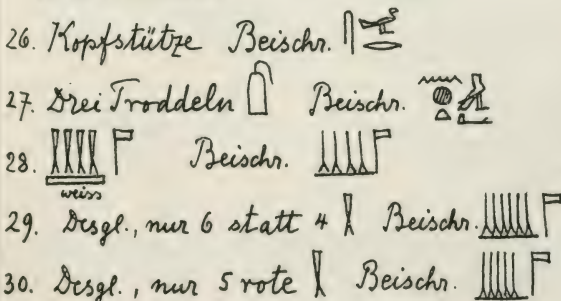 26. Kopfstütze Beischr.
27. Drei Troddeln Beischr.
28. Beischr.
weiss
29. Desgl., nur 6 statt 4 Beischr.
30. Desgl., nur 5 rote Beischr.